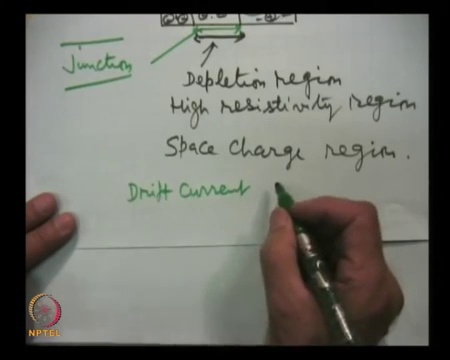 Junction
Depletion region
High resistivity region
Space Charge region.
Drift Current
NPTEL